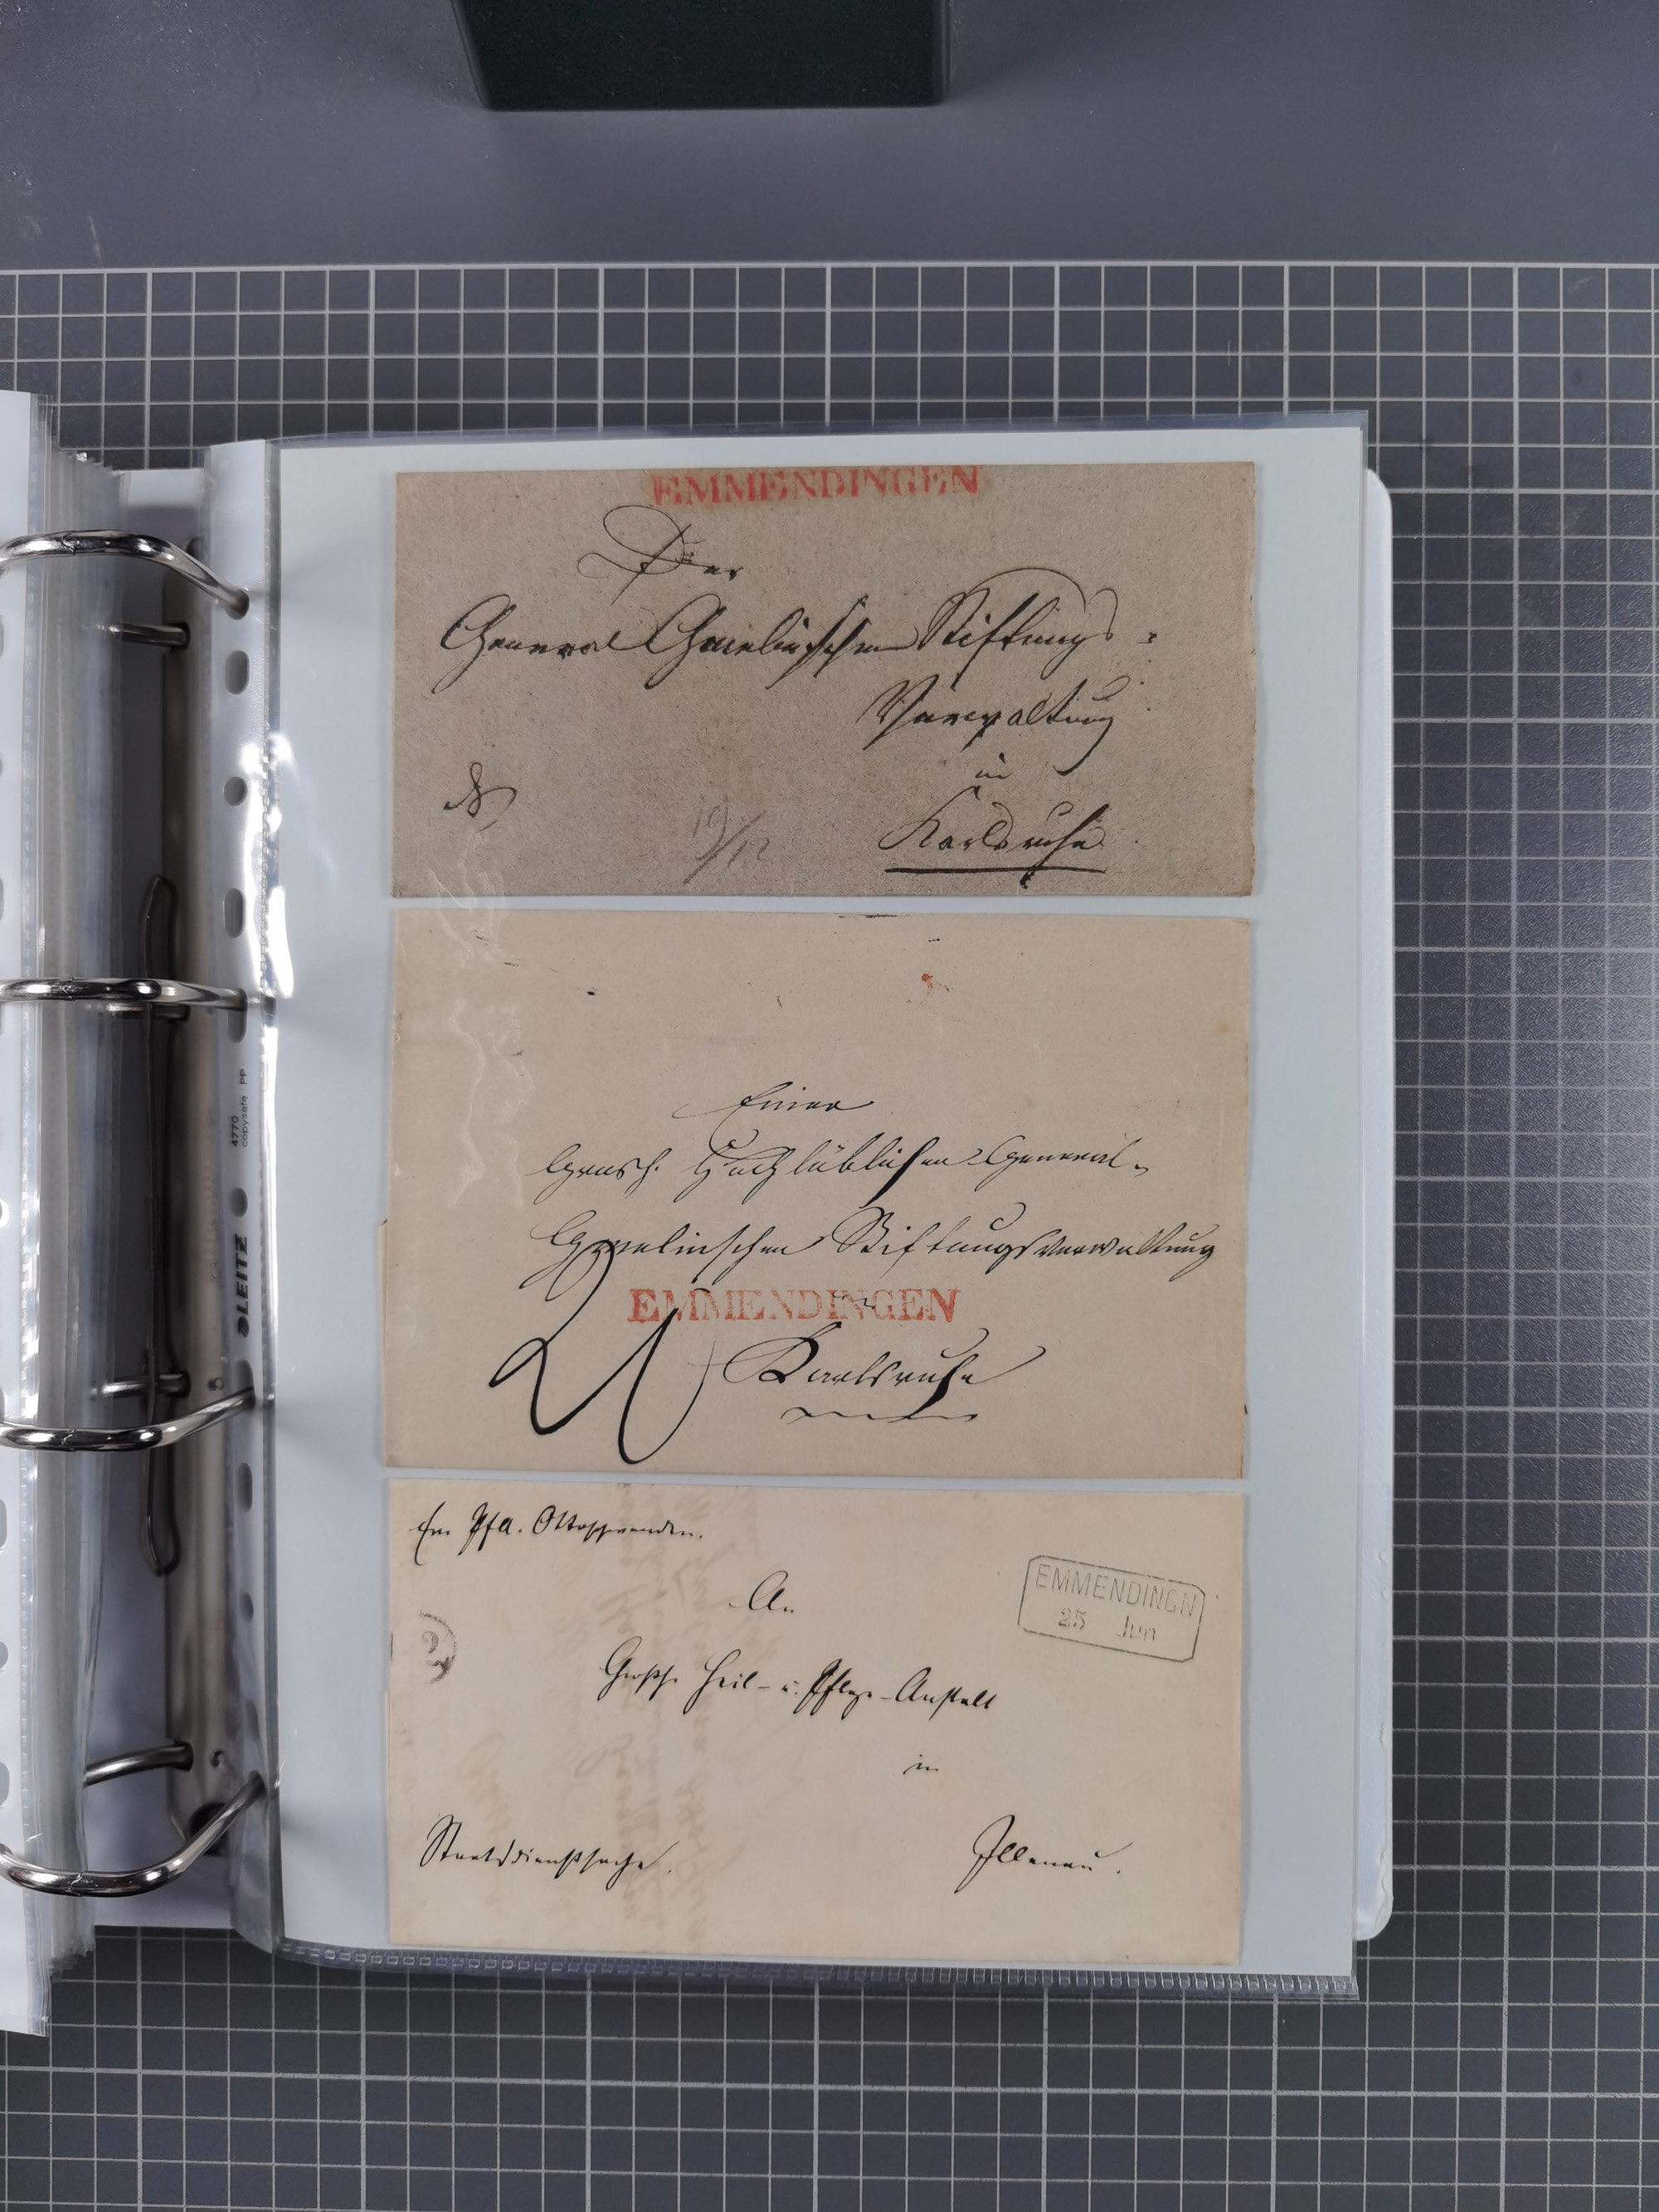 EMMENDINGEN
Der
General Gmelinschen Stiftungs-
Verwaltung
in
Karlsruhe
19/12
Einer
Grosh. Hochlöblichen General-
Gmelinschen Stiftungsverwaltung
EMMENDINGEN
in
Karlsruhe
Ev. Pfa. Ottoschwanden.
EMMENDINGN
25 Jun
An
Großh. Heil- u. Pflege-Anstalt
in
Staatsdienstsache.
Illenau.
LEITZ
4770
copysafe PP